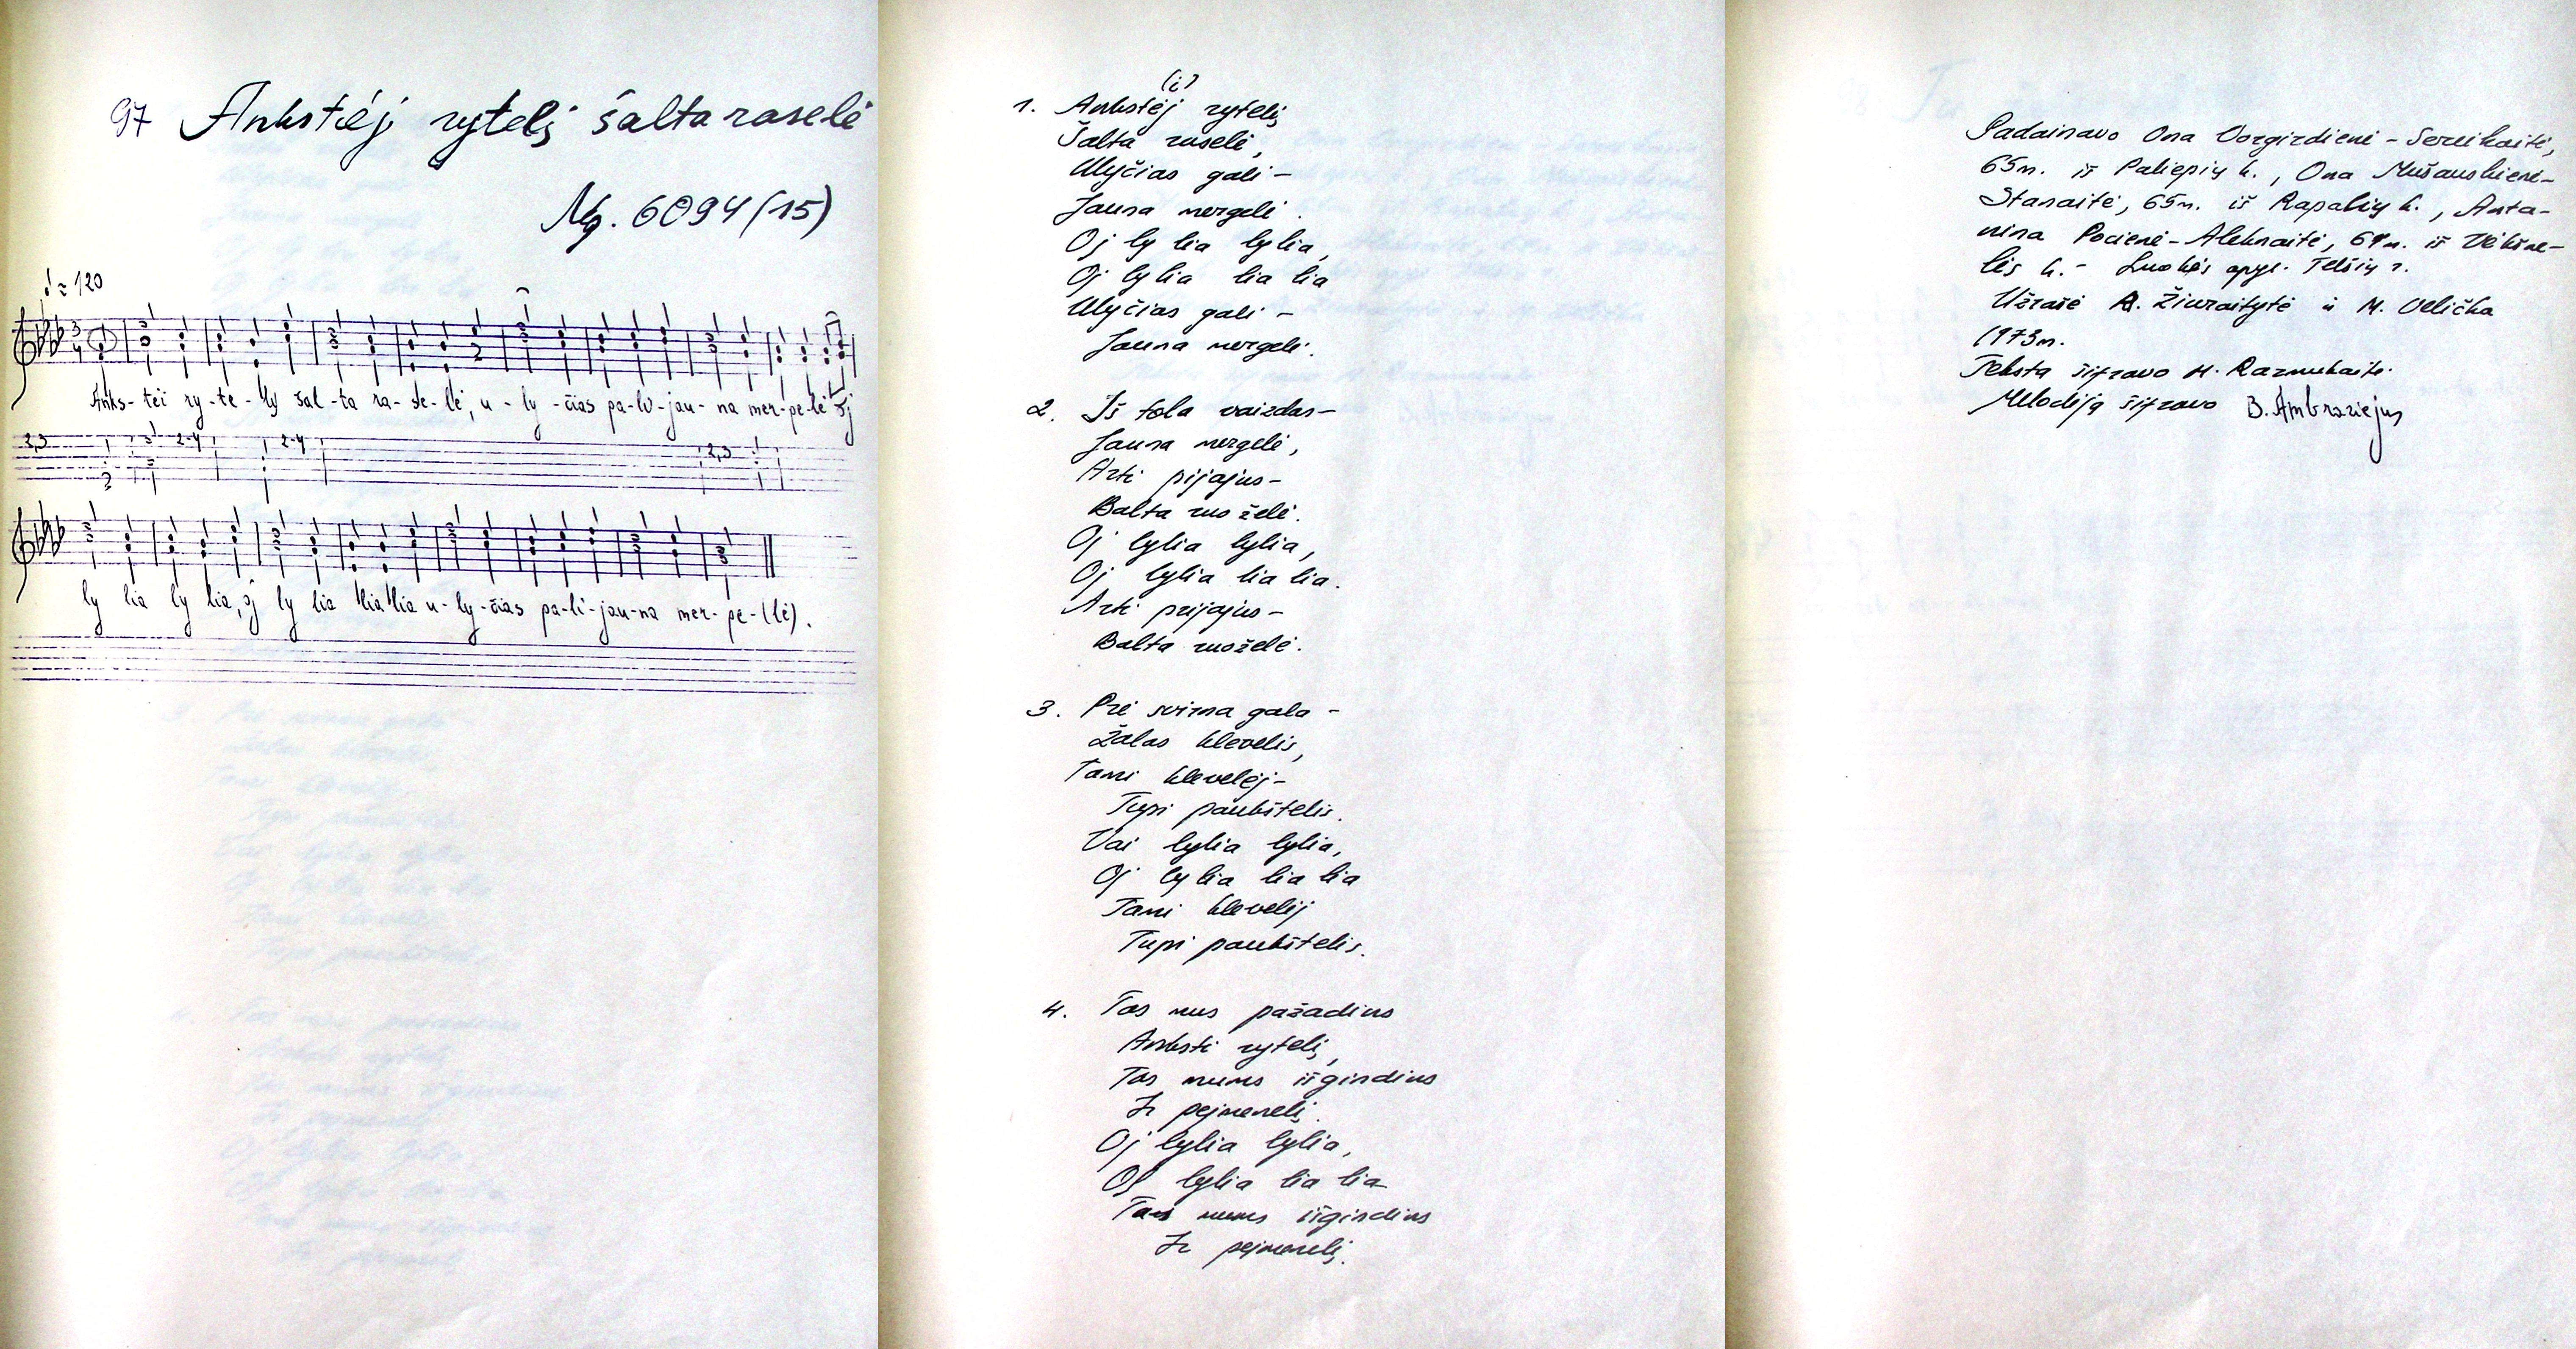 97 Ankstėj rytelį šalta raselė
Mg. 6094 (15)
♩ = 120
3
4
Anks-tėi ry-te-lly šal-ta ra-se-lė, u-ly-čias pa-lė-jau-na mer-pe-lė oj
2,3 2-4 2-4 2,3
ly lia ly lia, oj ly lia llia llia u-ly-čias pa-li-jau-na mer-pe-(lė).
(i)
1. Ankstėj rytelį
Šalta raselė,
Ulyčias gali -
Jauna mergelė.
Oj ly lia lylia,
Oj lylia lia lia
Ulyčias gali -
Jauna mergelė.
2. Iš tola vaizdas -
Jauna mergelė,
Arti pijajus -
Balta ruoželė.
Oj lylia lylia,
Oj lylia lia lia.
Arti prijajus -
Balta ruoželė.
3. Prė svirna gala -
Žalas klevelis,
Tami klevelėj -
Tupi paukštelis.
Vai lylia lylia,
Oj lylia lia lia
Tami klevelėj
Tupi paukštelis.
4. Tas mus pažadins
Anksti rytelį,
Tas mums išgindins
Ir pejmenelį.
Oj lylia lylia,
Oj lylia lia lia
Tas mums išgindins
Ir pejmenelį.
Padainavo Ona Vozgirdienė - Sereikaitė,
65m. iš Paliepių k., Ona Mušauskienė-
Stanaitė, 65m. iš Rapalių k., Anta-
nina Pocienė - Aleknaitė, 69m. iš Vėkšne-
lės k. - Luokės apyl. Telšių r.
Užrašė A. Žiuraitytė ir M. Velička
1973m.
Tekstą šifravo M. Razmukaitė.
Melodiją šifravo B. Ambraziejus